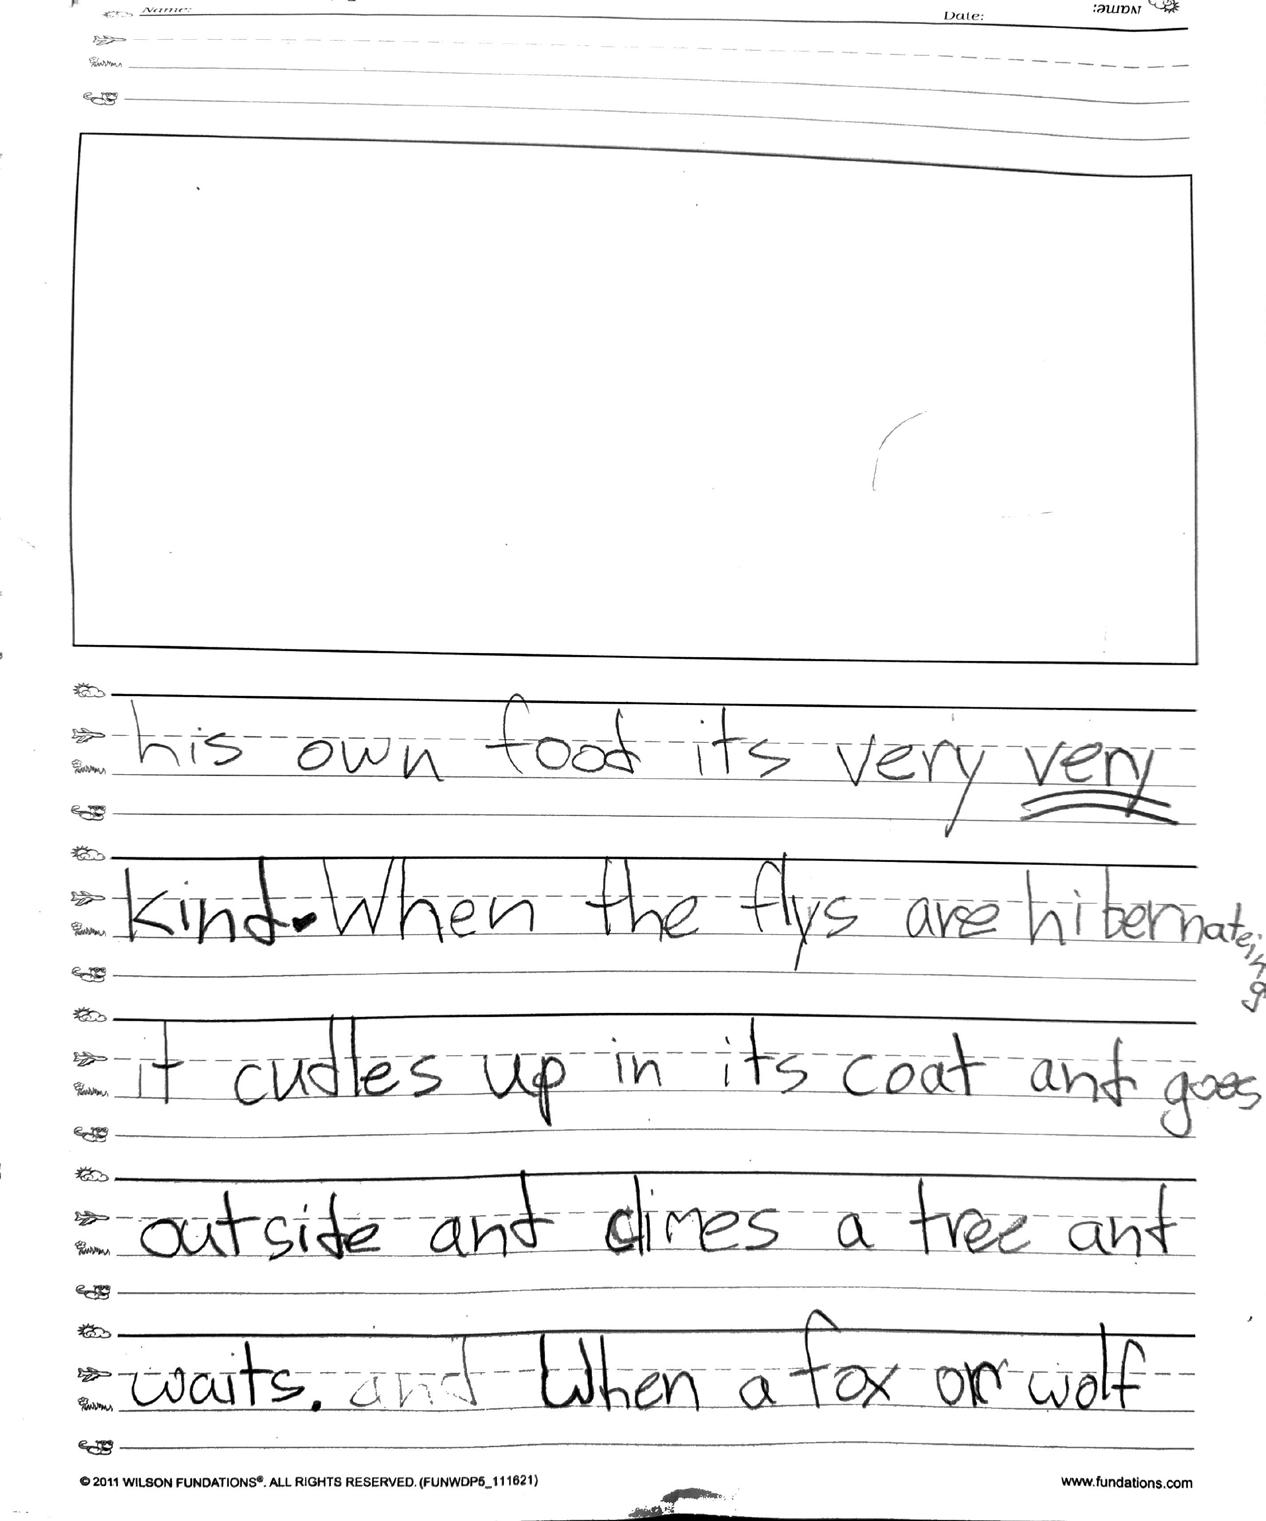 Name:
Date:
Name:
his own food its very very
kind. When the flys are hibernateing
it cudles up in its coat and goes
outside and climes a tree and
waits. and When a fox or wolf
© 2011 WILSON FUNDATIONS®. ALL RIGHTS RESERVED. (FUNWDP5_111621)
www.fundations.com